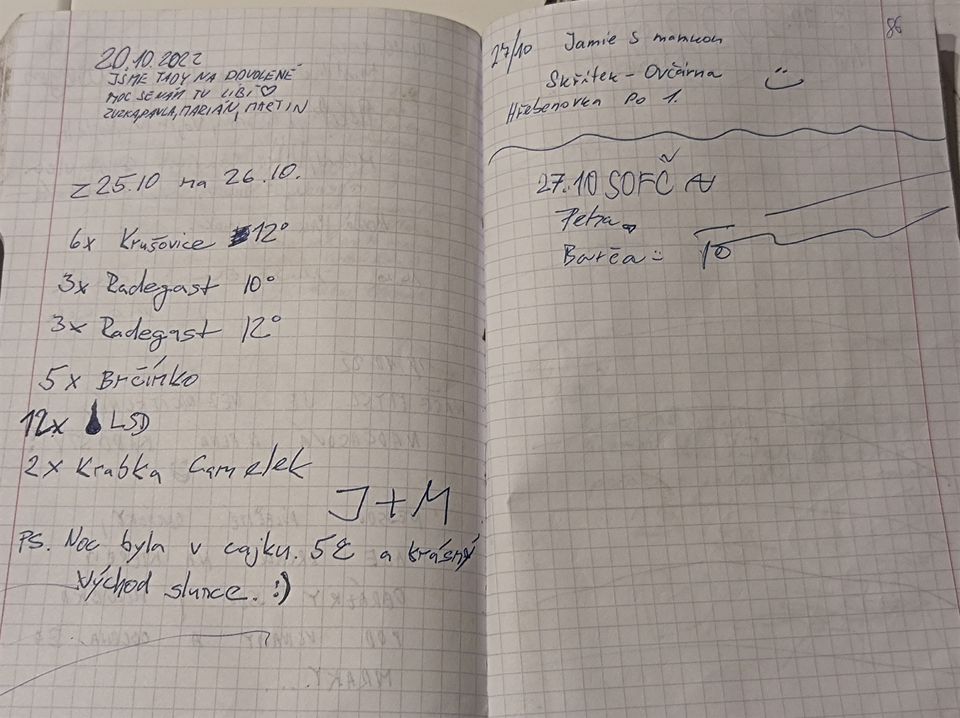 20.10.2022
JSME TADY NA DOVOLENÉ
MOC SE NÁM TU LÍBÍ ♡
ZUZKA, PAVLA, MARIÁN, MARTIN
Z 25.10 na 26.10.
6x Krušovice 12°
3x Radegast 10°
3x Radegast 12°
5x Brčínko
12x LSD
2x Krabka Camelek
J + M
PS. Noc byla v cajku. 5℃ a krásný
východ slunce. :)
86
27/10 Jamie s mamkou
Skřítek - Ovčárna
Hřebenovka Po 1.
27.10 SOFČA
Petra
Barča